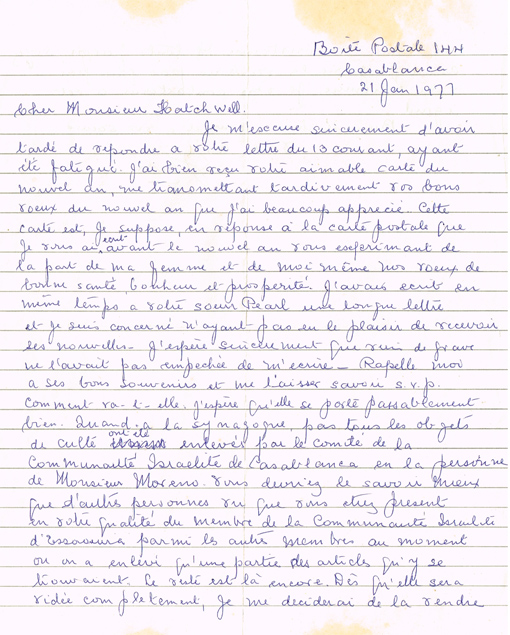 Boite Postale 144
Casablanca
21 Jan 1977
Cher Monsieur Hatchwell.
Je m'escuse sincerement d'avoir
tardé de repondre a votre lettre du 13 courant, ayant
été fatigué. J'ai bien reçu votre aimable carte du
nouvel an, me transmettant tardivement vos bons
voeux du nouvel an que j'ai beaucoup apprecié. Cette
carte est, je suppose, en réponse à la carte postale que
Je vous ai ecrit avant le nouvel an vous exprimant de
la part de ma femme et de moi même nos voeux de
bonne santé, bonheur et prosperité. J'avais ecrit en
même temps a votre soeur Pearl une longue lettre
et je suis concerné n'ayant pas eu le plaisir de recevoir
ses nouvelles. J'espère sincerement que rien de grave
ne l'avait pas empechée de m'ecrire - Rapelle moi
a ses bons souvenirs et me laisser savoir s.v.p.
comment va-t-elle. J'espère qu'elle se porte passablement
bien. Quand a la synagogue, pas tous les objets
de culte ont été enlevés par le comité de la
Communauté Israelite de Casablanca en la personne
de Monsieur Moreno. Vous devriez le savoir mieux
que d'autres personnes vu que vous etiez present
en votre qualité du membre de la Communauté Israelite
d'Essaouira parmi les autres membres au moment
ou on a enlevé qu'une partie des articles qu'y se
trouvaient. Le reste est là encore. Dès qu'elle sera
vidée completement, Je me deciderai de la rendre